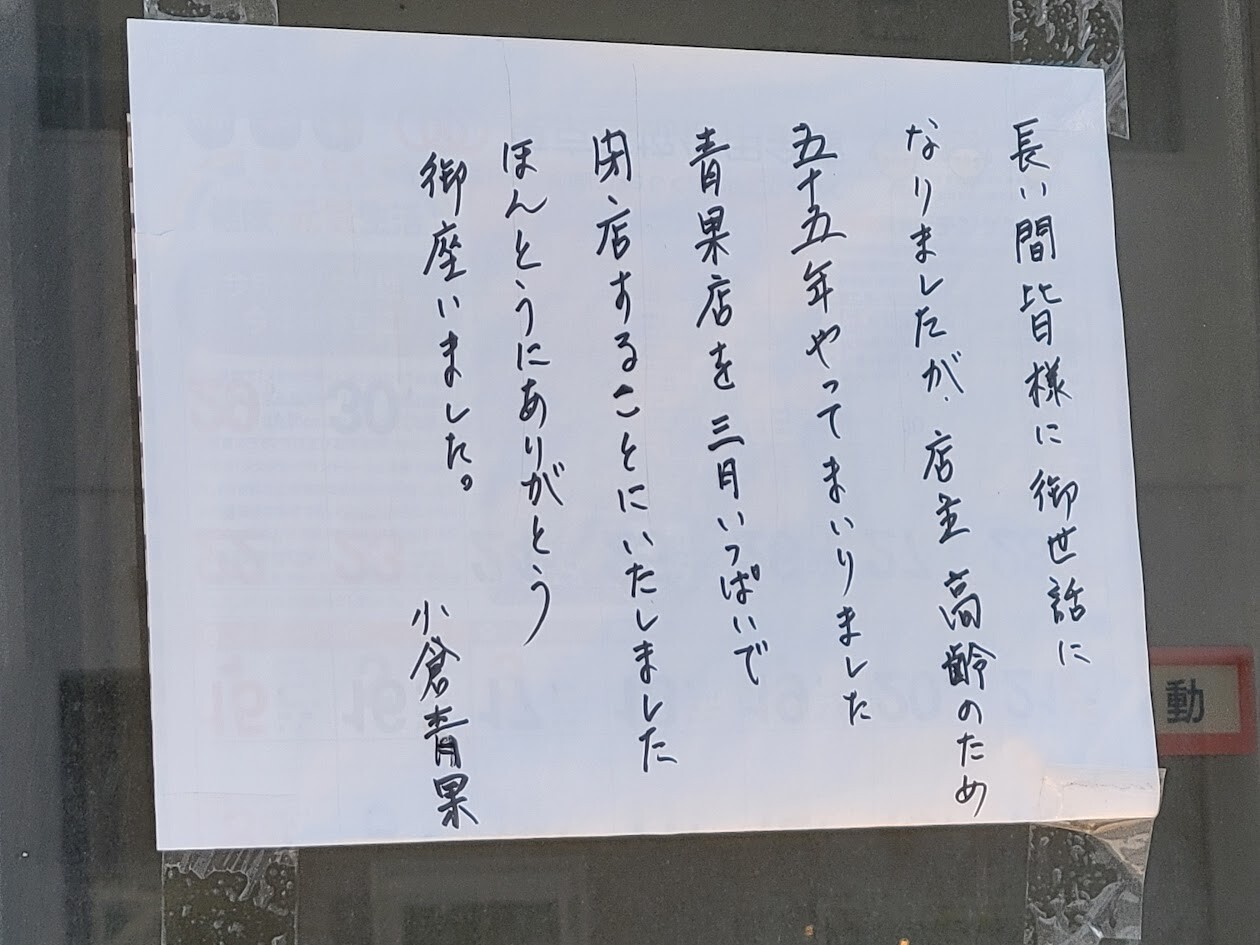 長い間皆様に御世話に
なりましたが、店主高齢のため
五十五年やってまいりました
青果店を三月いっぱいで
閉店することにいたしました
ほんとうにありがとう
御座いました。
小倉青果
動